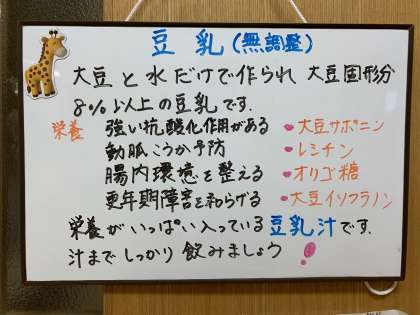 豆乳(無調整)
大豆と水だけで作られ 大豆固形分
8%以上の豆乳です.
栄養 強い抗酸化作用がある 大豆サポニン
動脈こうか予防 レシチン
腸内環境を整える オリゴ糖
更年期障害を和らげる 大豆イソフラノン
栄養がいっぱい入っている豆乳汁です.
汁までしっかり飲みましょう!